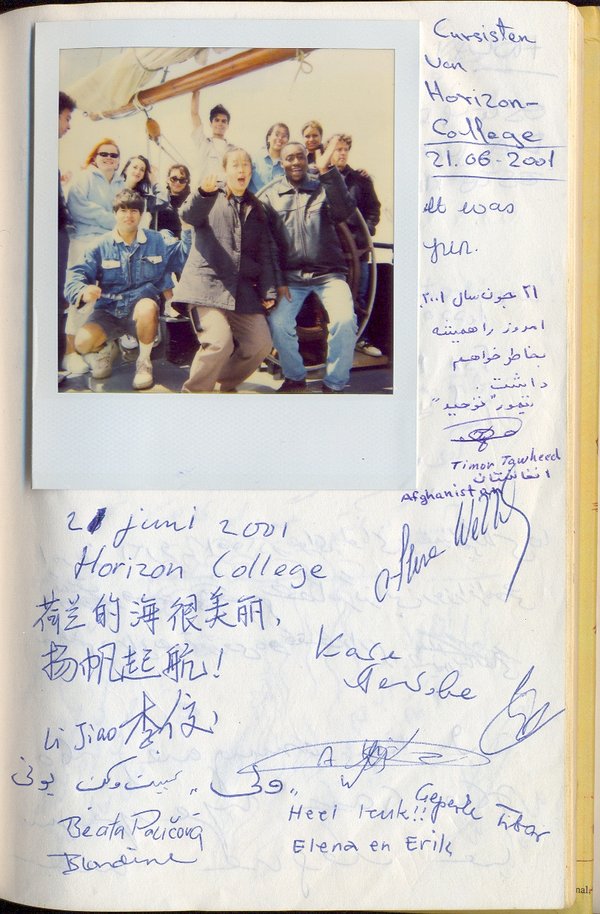 Cursisten
van
Horizon-
College
21.06-2001
It was
fun.
۲۱ جون سال ۲۰۰۱
امروز را همیشه
بخاطر خواهم
داشت.
تیمور "توحید"
Timor Tawheed
افغانستان
Afghanistan
21 juni 2001
Horizon College
荷兰的海很美丽,
扬帆起航!
Li Jiao 李
Beata
Blandine
Heel leuk!!
Tibor
Elena en Erik
nal